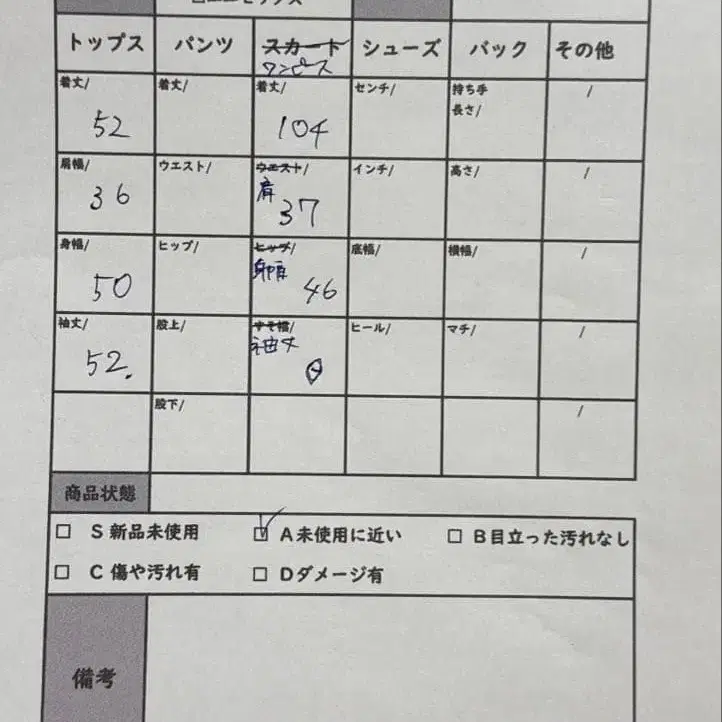 トップス パンツ スカート シューズ バック その他
ワンピース
着丈/ 着丈/ 着丈/ センチ/ 持ち手 /
長さ/
52 104
肩幅/ ウエスト/ ウエスト/ インチ/ 高さ/ /
肩
36 37
身幅/ ヒップ/ ヒップ/ 底幅/ 横幅/ /
身幅
50 46
袖丈/ 股上/ すそ幅/ ヒール/ マチ/ /
袖丈
52. 0
股下/ /
商品状態
□ S 新品未使用 ☑ A未使用に近い □ B目立った汚れなし
□ C 傷や汚れ有 □ Dダメージ有
備考